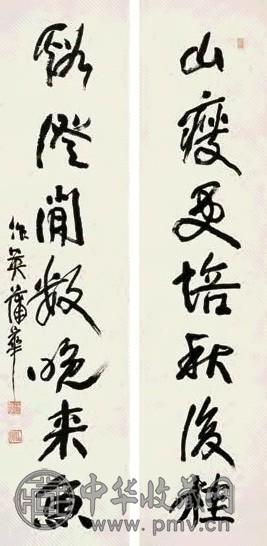 山瘦更培秋後桂
谿澄閒數晚来魚
作英蒲華
中华收藏网
www.pmv.cn